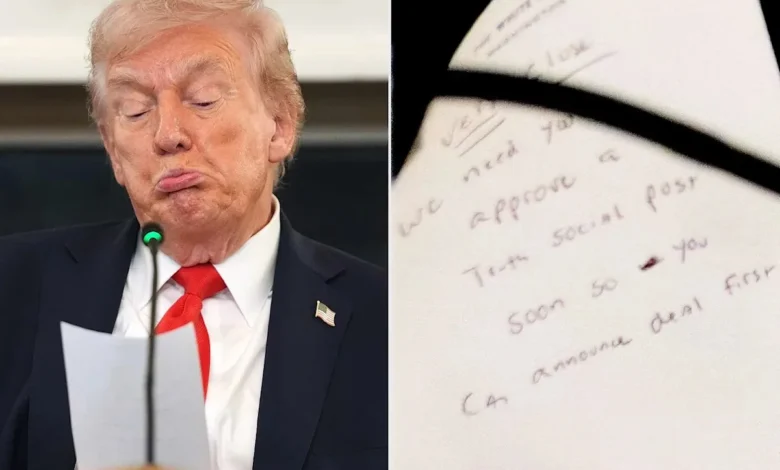 THE WHITE
WASHINGTON
Very close
we need you
approve a
Truth Social post
soon so you
can announce deal first